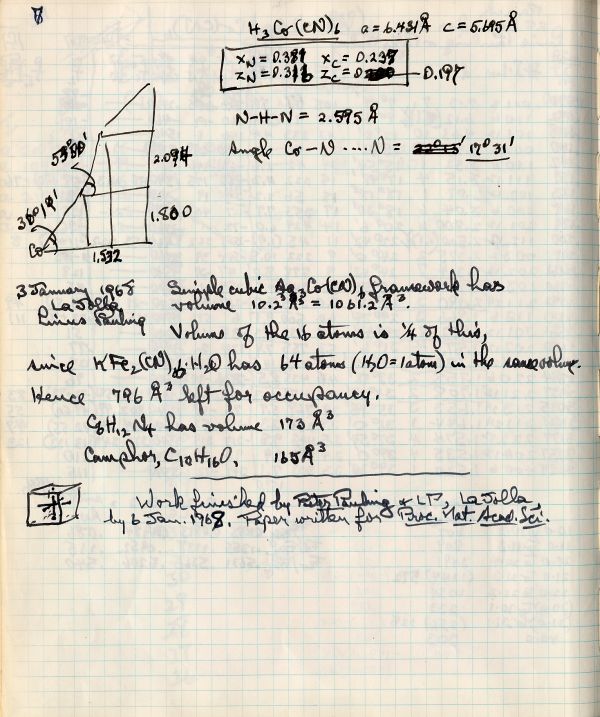 H3Co(CN)6 a=6.431Å c=5.695Å
xN = 0.389 xC = 0.238
zN = 0.316 zC = 0 0.197
N-H-N = 2.595 Å
Angle Co-N....N = 17°31'
2.094
1.800
Co
1.532
3 January 1968 Simple cubic Ag3Co(CN)6 framework has
La Jolla volume 10.2³Å³ = 1061.2 Å³.
Linus Pauling Volume of the 16 atoms is ¼ of this,
since KFe2(CN)6·H2O has 64 atoms (H2O=1 atom) in the same volume.
Hence 796 Å³ left for occupancy.
C6H12N4 has volume 173 Å³
Camphor, C10H16O, 165Å³
Work finished by Peter Pauling & LP, La Jolla,
by 6 Jan. 1968. Paper written for Proc. Nat. Acad. Sci.